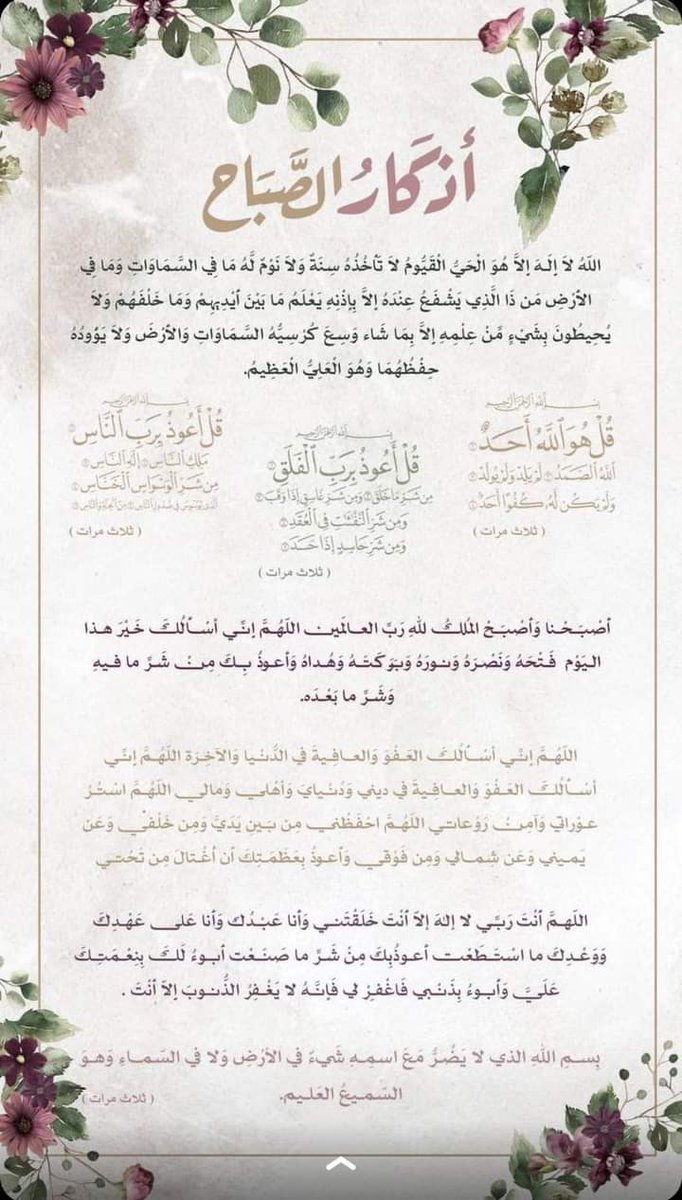 أذكَارُ الصَّبَاح
اللهُ لاَ إِلَـهَ إِلاَّ هُوَ الْحَيُّ الْقَيُّومُ لاَ تَأْخُذُهُ سِنَةٌ وَلاَ نَوْمٌ لَّهُ مَا فِي السَّمَاوَاتِ وَمَا فِي
الأَرْضِ مَن ذَا الَّذِي يَشْفَعُ عِنْدَهُ إِلاَّ بِإِذْنِهِ يَعْلَمُ مَا بَيْنَ أَيْدِيهِمْ وَمَا خَلْفَهُمْ وَلاَ
يُحِيطُونَ بِشَيْءٍ مِّنْ عِلْمِهِ إِلاَّ بِمَا شَاء وَسِعَ كُرْسِيُّهُ السَّمَاوَاتِ وَالأَرْضَ وَلاَ يَؤُودُهُ
حِفْظُهُمَا وَهُوَ الْعَلِيُّ الْعَظِيمُ.
بِسْمِ ٱللَّهِ ٱلرَّحْمَٰنِ ٱلرَّحِيمِ
قُلْ هُوَ ٱللَّهُ أَحَدٌ
ٱللَّهُ ٱلصَّمَدُ لَمْ يَلِدْ وَلَمْ يُولَدْ
وَلَمْ يَكُن لَّهُۥ كُفُوًا أَحَدٌۢ
( ثلاث مرات )
بِسْمِ ٱللَّهِ ٱلرَّحْمَٰنِ ٱلرَّحِيمِ
قُلْ أَعُوذُ بِرَبِّ ٱلْفَلَقِ
مِن شَرِّ مَا خَلَقَ وَمِن شَرِّ غَاسِقٍ إِذَا وَقَبَ
وَمِن شَرِّ ٱلنَّفَّٰثَٰتِ فِي ٱلْعُقَدِ
وَمِن شَرِّ حَاسِدٍ إِذَا حَسَدَ
( ثلاث مرات )
بِسْمِ ٱللَّهِ ٱلرَّحْمَٰنِ ٱلرَّحِيمِ
قُلْ أَعُوذُ بِرَبِّ ٱلنَّاسِ
مَلِكِ ٱلنَّاسِ إِلَٰهِ ٱلنَّاسِ
مِن شَرِّ ٱلْوَسْوَاسِ ٱلْخَنَّاسِ
ٱلَّذِي يُوَسْوِسُ فِي صُدُورِ ٱلنَّاسِ مِنَ ٱلْجِنَّةِ وَٱلنَّاسِ
( ثلاث مرات )
أَصْبَحْنا وَأَصْبَحَ المُلكُ للهِ رَبِّ العـالَمين اللهُمَّ إِنَّي أَسْأَلُكَ خَيْرَ هذا
اليَوْم فَتْحَهُ وَنَصْرَهُ وَنورَهُ وَبَرَكَتَهُ وَهُداهُ وَأَعوذُ بِكَ مِنْ شَرَّ ما فيهِ
وَشَرَّ ما بَعْدَه.
اللهُمَّ إِنَّي أَسْأَلُكَ العَفْوَ وَالعـافِيةَ في الدُّنْيا وَالآخِرَة اللهُمَّ إِنَّي
أَسْأَلُكَ العَفْوَ وَالعافِيةَ في ديني وَدُنْيايَ وَأَهْلي وَمالي اللهُمَّ اسْتُر
عوْراتي وَآمِنْ رَوْعاتي اللهُمَّ احْفَظْني مِن بَينِ يَدَيَّ وَمِن خَلْفي وَعَن
يَميني وَعَن شِمـالي وَمِن فَوْقي وَأَعوذُ بِعَظَمَتِكَ أَن أُغْتالَ مِن تَحْتي
اللّهمَّ أَنْتَ رَبِّي لا إلهَ إلاّ أَنْتَ خَلَقْتَني وَأَنا عَبْدُك وَأَنا عَلى عَهْدِكَ
وَوَعْدِكَ ما اسْتَطَعْت أعوذُبِكَ مِنْ شَرِّ ما صَنَعْت أَبوءُ لَكَ بِنِعْمَتِكَ
عَلَيَّ وَأَبوءُ بِذَنْبي فَاغْفِرْ لي فَإِنَّهُ لا يَغْفِرُ الذُّنوبَ إِلاّ أَنْتَ .
بِسمِ اللهِ الذي لا يَضُرُّ مَعَ اسمِهِ شَيءٌ في الأرْضِ وَلا في السّماءِ وَهوَ
السّميعُ العَليم.
( ثلاث مرات )